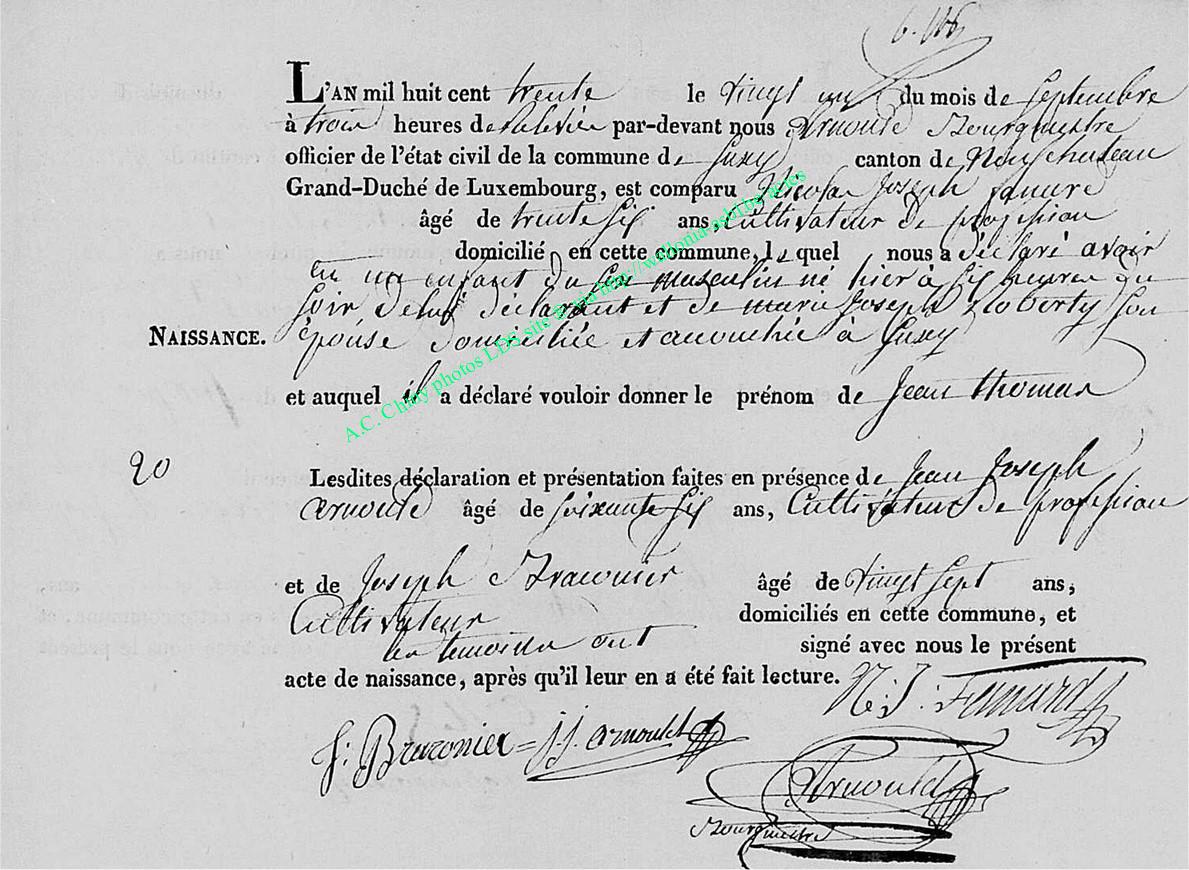 L'AN mil huit cent trente le Vingt un du mois de Septembre
à trois heures de relevée par-devant nous Arnould Bourgmestre
officier de l'état civil de la commune de Suxy canton de Neufchateau
Grand-Duché de Luxembourg, est comparu Nicolas Joseph
âgé de trente six ans, Cultivateur de profession
domicilié en cette commune, Lequel nous a déclaré avoir
eu un enfant du sexe masculin né hier à six heures du
soir de lui déclarant et de marie Joseph Roberty son
NAISSANCE. épouse domiciliée et accouchée à Suxy
et auquel il a déclaré vouloir donner le prénom de Jean thomas
20 Lesdites déclaration et présentation faites en présence de Jean Joseph
arnould âgé de soixante six ans, Cultivateur de profession
et de Joseph Braconier âgé de Vingt sept ans,
Cultivateur domiciliés en cette commune, et
les temoins ont signé avec nous le présent
acte de naissance, après qu'il leur en a été fait lecture.
N: J:
J: Braconier = j. j. arnould
Arnould
Bourgmestre
A.C. Chiny photos LDS site Tania http://wallonia-asbl.be/actes